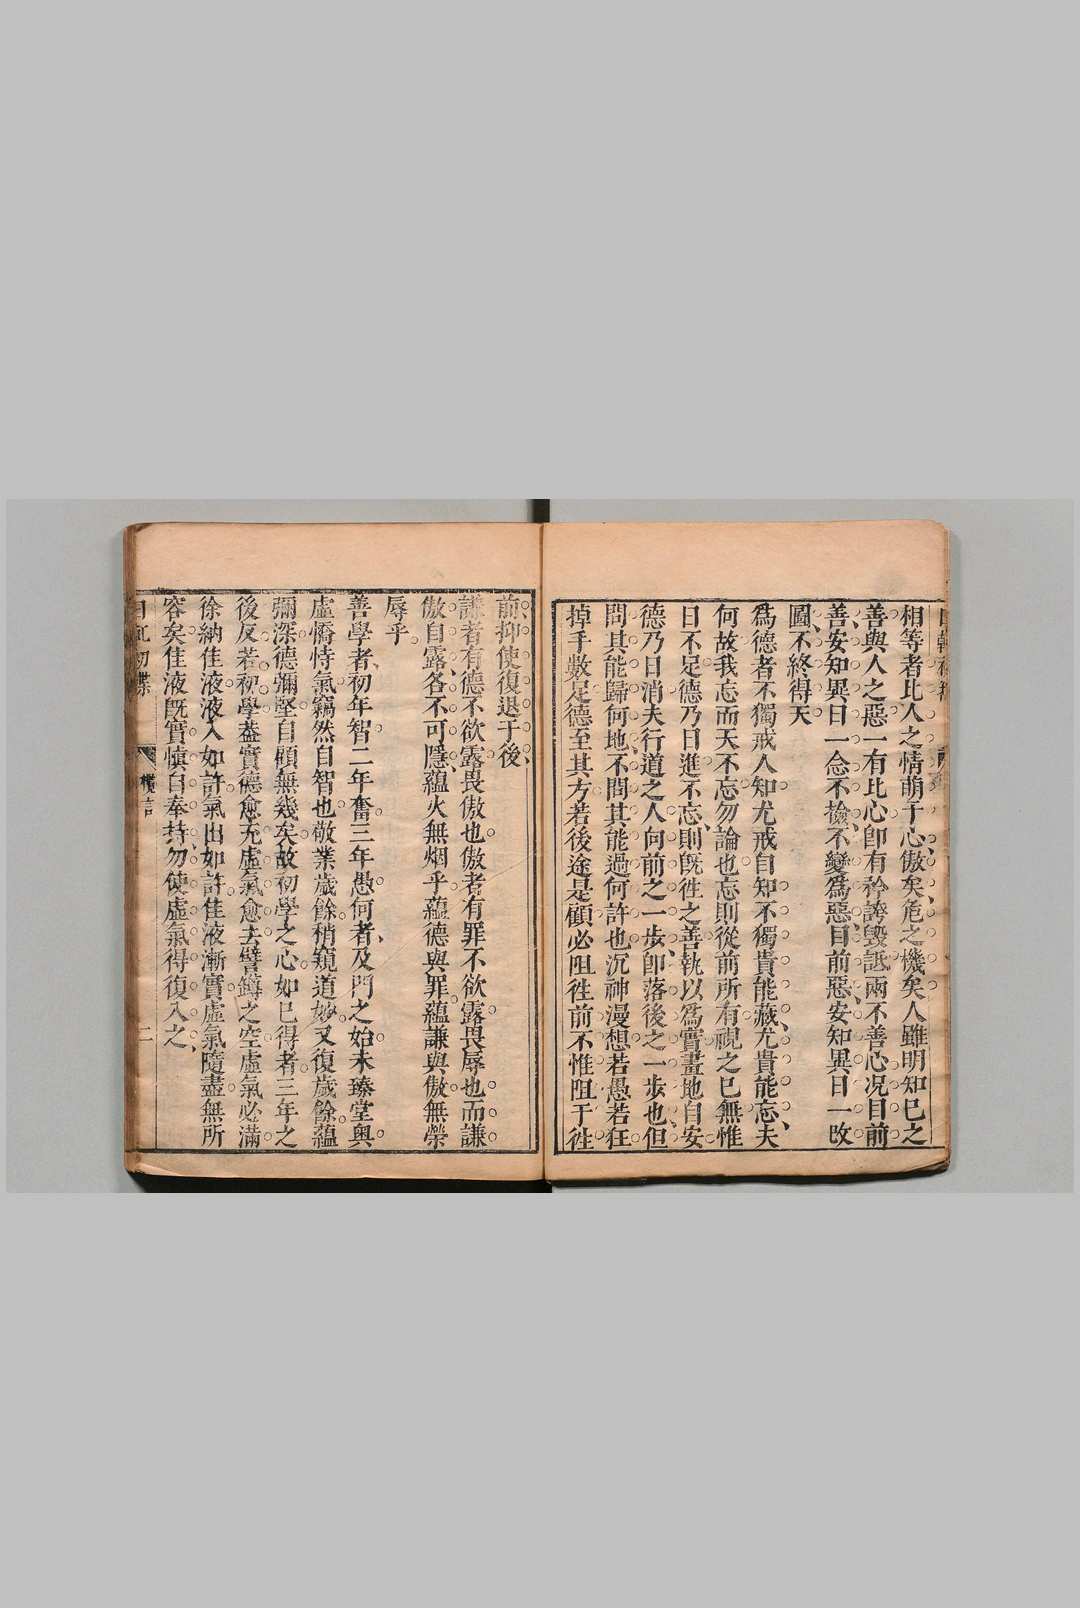 相等者比人之情萌于心傲矣危之機矣人雖明知已之
善與人之惡一有比心卽有矜誇毀詆兩不善心况目前
善安知異日一念不檢不變爲惡目前惡安知異日一改
圖不終得天
爲德者不獨戒人知尤戒自知不獨貴能藏尤貴能忘夫
何故我忘而天不忘勿論也忘則從前所有視之已無惟
日不足德乃日進不忘則旣徃之善執以爲實畫地自安
德乃日消夫行道之人向前之一步卽落後之一步也但
問其能歸何地不問其能過何許也沉神漫想若愚若狂
掉手數足德至其方若後途是顧必阻徃前不惟阻于徃
前抑使復退于後
謙者有德不欲露畏傲也傲者有罪不欲露畏辱也而謙
傲自露各不可隱蘊火無烟乎蘊德與罪蘊謙與傲無榮
辱乎
善學者初年智二年奮三年愚何者及門之始未臻堂奧
虛憍恃氣竊然自智也敬業歲餘稍窺道妙又復歲餘蘊
彌深德彌堅自顧無幾矣故初學之心如已得者三年之
後反若初學葢實德愈充虛氣愈去譬罇之空虛氣必滿
徐納佳液液入如許氣出如許佳液漸實虛氣隨盡無所
容矣佳液旣實愼自奉持勿使虛氣得復入之
二